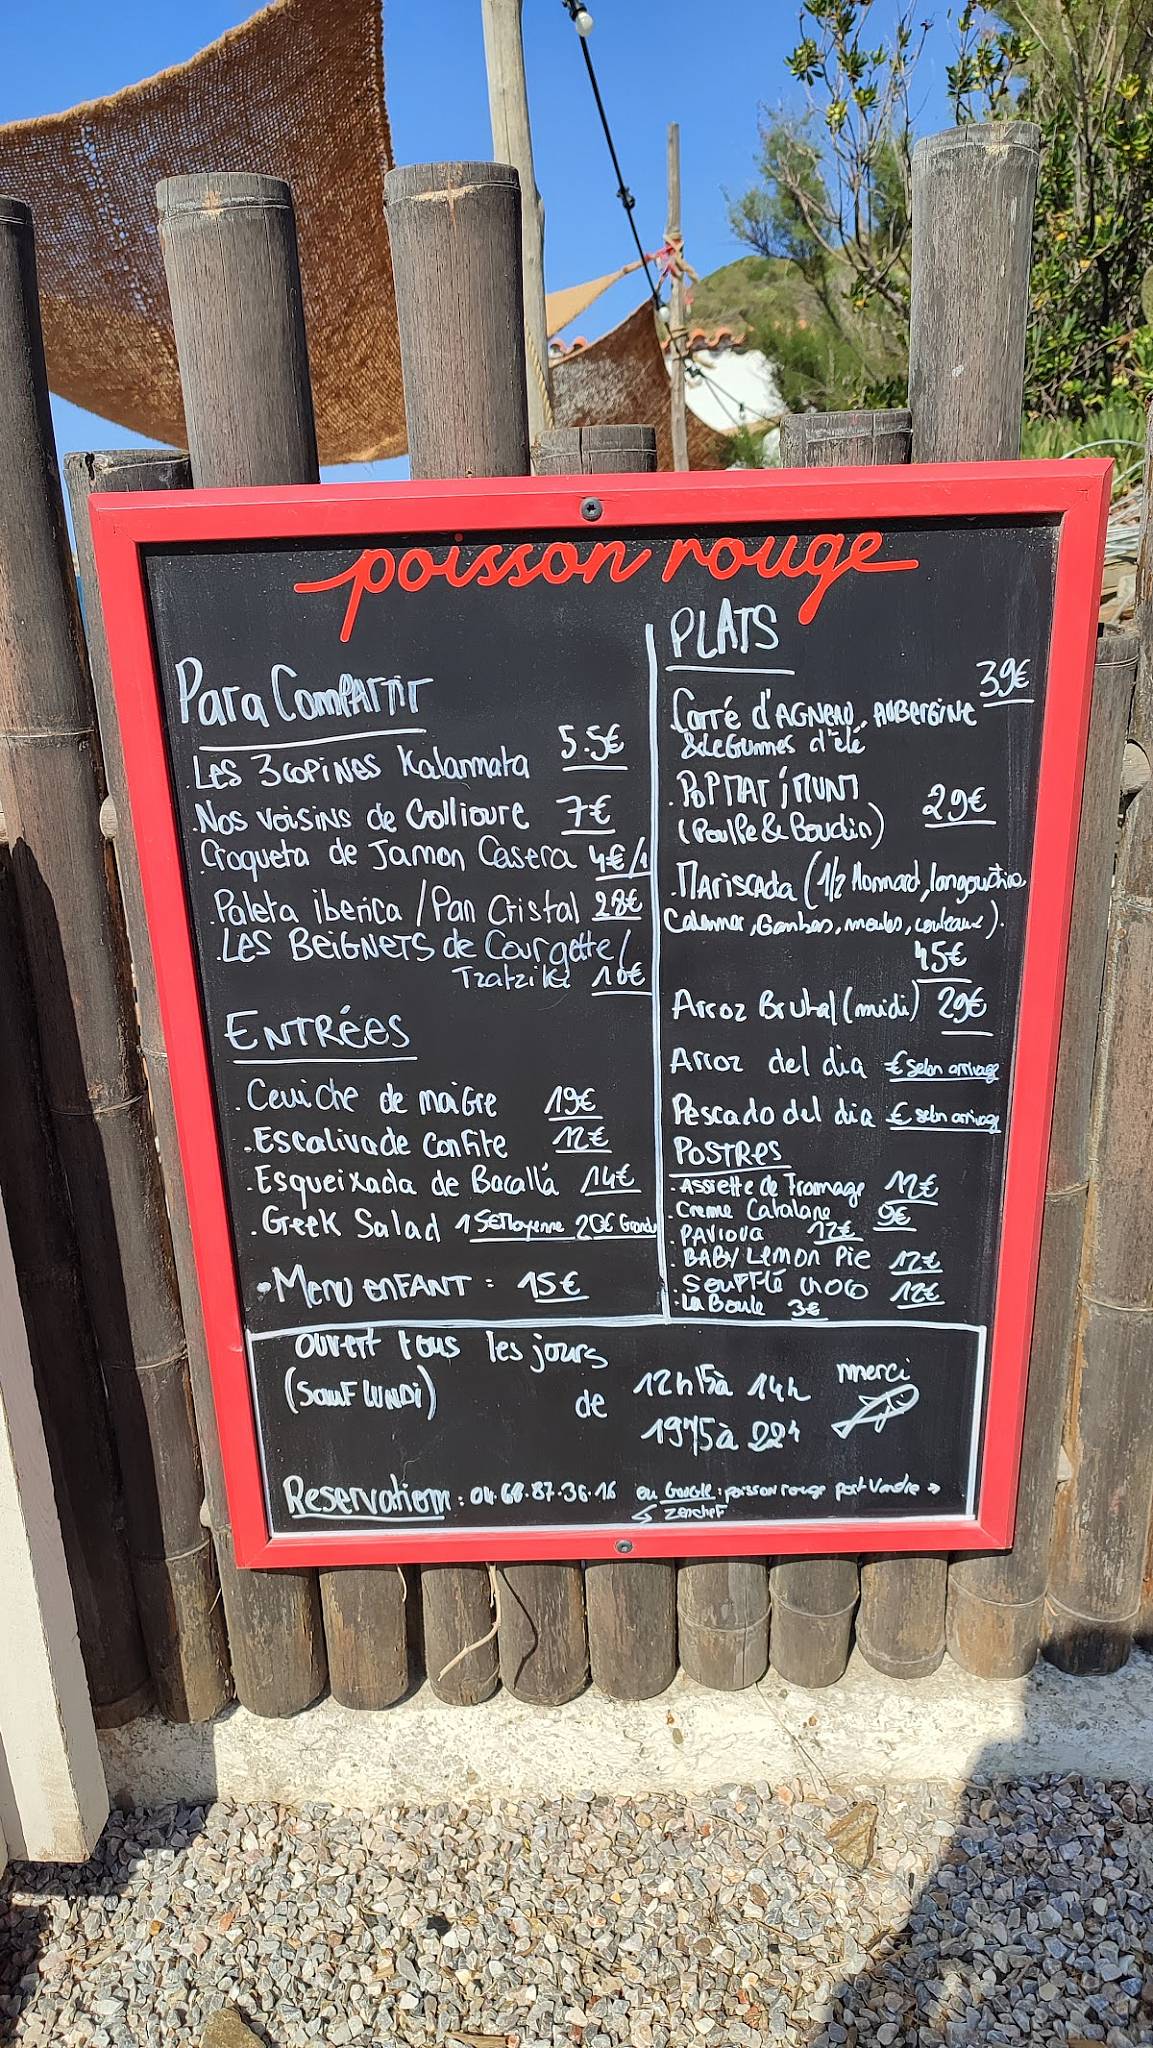 poisson rouge
Para Compartir
.Les 3 copines Kalamata 5.5€
.Nos voisins de Collioure 7€
.Croqueta de Jamon Casera 4€/1
.Paleta iberica / Pan Cristal 28€
.Les Beignets de Courgette /
Tzatziki 10€
Entrées
.Ceviche de maigre 19€
.Escalivade confite 12€
.Esqueixada de Bacallá 14€
.Greek Salad 15€ Moyenne 20€ Grande
.Menu enfant : 15€
PLATS
39€
.Carré d'Agneau, Aubergine
& Legumes d'été
.Popmar i munt 29€
(Poulpe & Boudin)
.Mariscada (1/2 Hommard, langoustine
Calamar, Gambas, moules, couteaux).
45€
Arroz Brutal (midi) 29€
Arroz del dia € selon arrivage
Pescado del dia € selon arrivage
Postres
.Assiette de Fromage 12€
.Creme Catalane 9€
.Pavlova 12€
.Baby Lemon Pie 12€
.Soufflé choco 12€
.La Boule 3€
Ouvert tous les jours
(sauf Lundi) de 12h15 à 14h merci
19h15 à 22h
Reservation : 04.68.87.36.16 ou Google : poisson rouge port Vendre →
↳ zenchef